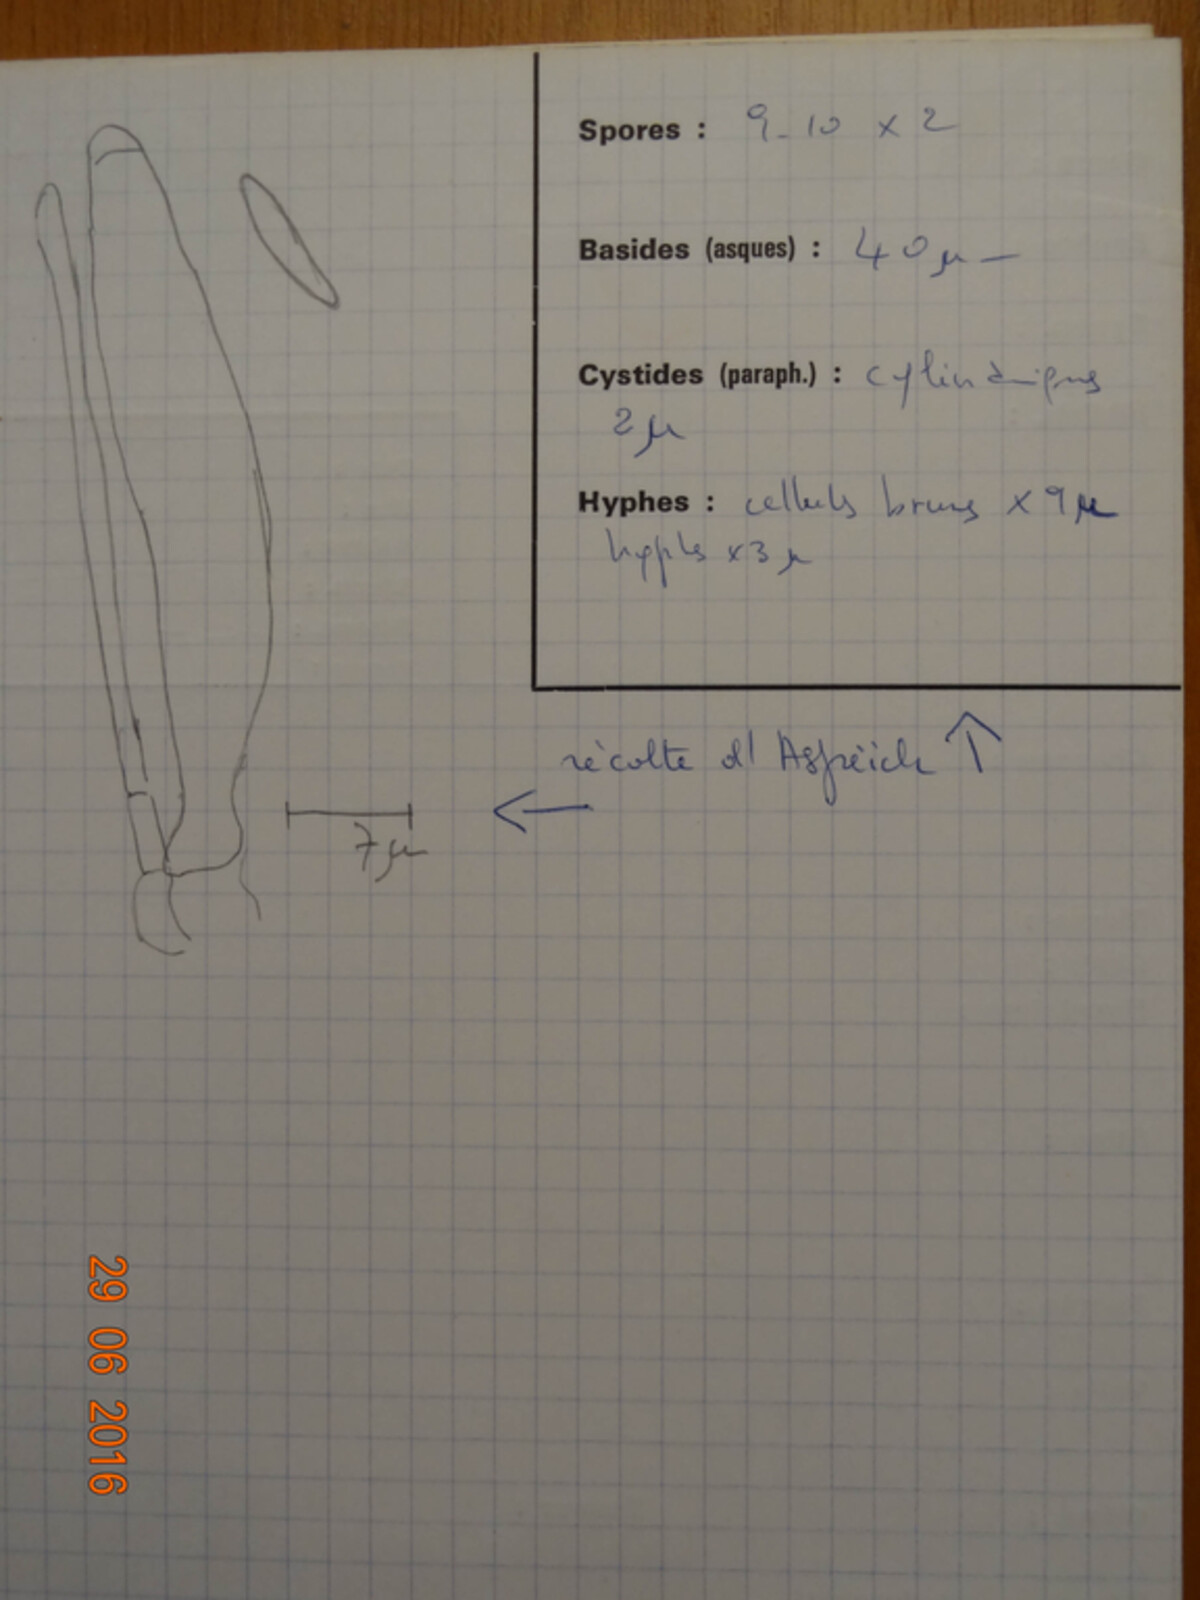 Spores : 9-10 x 2
Basides (asques) : 40 µ
Cystides (paraph.) : cylindriques
2 µ
Hyphes : cellules brunes x 9 µ
hyphes x 3 µ
récolte d'
7 µ
29 06 2016